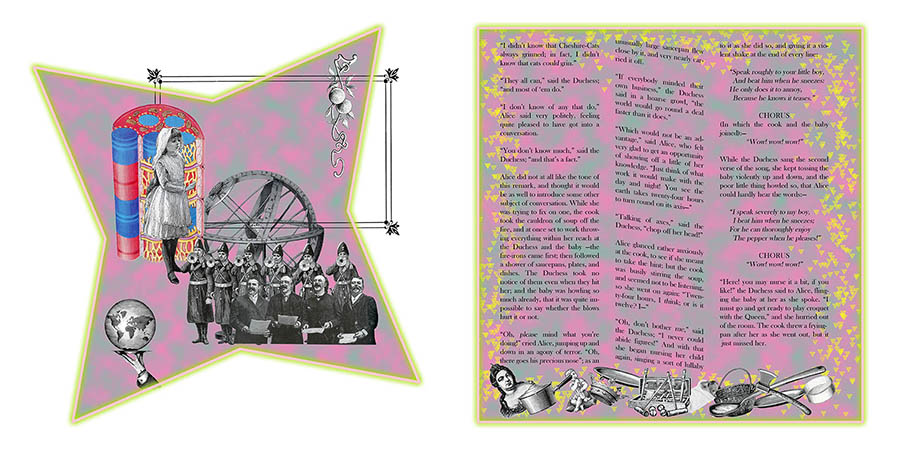 “I didn’t know that Cheshire-Cats
always grinned; in fact, I didn’t
know that cats could grin.”
“They all can,” said the Duchess;
“and most of ’em do.”
“I don’t know of any that do,”
Alice said very politely, feeling
quite pleased to have got into a
conversation.
“You don’t know much,” said the
Duchess; “and that’s a fact.”
Alice did not at all like the tone of
this remark, and thought it would
be as well to introduce some other
subject of conversation. While she
was trying to fix on one, the cook
took the cauldron of soup off the
fire, and at once set to work throw-
ing everything within her reach at
the Duchess and the baby —the
fire-irons came first; then followed
a shower of saucepans, plates, and
dishes. The Duchess took no
notice of them even when they hit
her; and the baby was howling so
much already, that it was quite im-
possible to say whether the blows
hurt it or not.
“Oh, please mind what you’re
doing!” cried Alice, jumping up and
down in an agony of terror. “Oh,
there goes his precious nose”; as an
unusually large saucepan flew
close by it, and very nearly car-
ried it off.
“If everybody minded their
own business,” the Duchess
said in a hoarse growl, “the
world would go round a deal
faster than it does.”
“Which would not be an ad-
vantage,” said Alice, who felt
very glad to get an opportunity
of showing off a little of her
knowledge. “Just think of what
work it would make with the
day and night! You see the
earth takes twenty-four hours
to turn round on its axis—”
“Talking of axes,” said the
Duchess, “chop off her head!”
Alice glanced rather anxiously
at the cook, to see if she meant
to take the hint; but the cook
was busily stirring the soup,
and seemed not to be listening,
so she went on again: “Twen-
ty-four hours, I think; or is it
twelve? I—”
“Oh, don’t bother me,” said
the Duchess; “I never could
abide figures!” And with that
she began nursing her child
again, singing a sort of lullaby
to it as she did so, and giving it a vio-
lent shake at the end of every line:
“Speak roughly to your little boy,
And beat him when he sneezes:
He only does it to annoy,
Because he knows it teases.”
CHORUS
(In which the cook and the baby
joined):—
“Wow! wow! wow!”
While the Duchess sang the second
verse of the song, she kept tossing the
baby violently up and down, and the
poor little thing howled so, that Alice
could hardly hear the words:—
“I speak severely to my boy,
I beat him when he sneezes;
For he can thoroughly enjoy
The pepper when he pleases!”
CHORUS
“Wow! wow! wow!”
“Here! you may nurse it a bit, if you
like!” the Duchess said to Alice, fling-
ing the baby at her as she spoke. “I
must go and get ready to play croquet
with the Queen,” and she hurried out
of the room. The cook threw a frying-
pan after her as she went out, but it
just missed her.